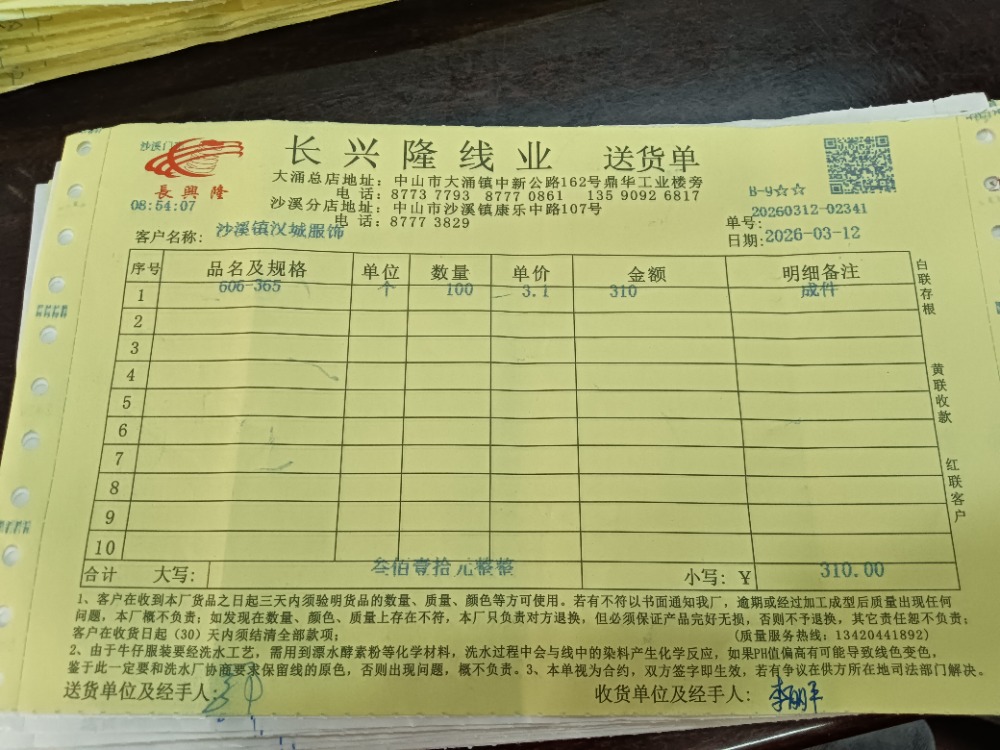 沙溪门
長興隆
08:54:07
长兴隆线业 送货单
大涌总店地址：中山市大涌镇中新公路162号鼎华工业楼旁
电话：8773 7793 8777 0861 135 9092 6817
沙溪分店地址：中山市沙溪镇康乐中路107号
电话：8777 3829
B-9☆☆
单号：20260312-02341
客户名称：沙溪镇汉城服饰
日期：2026-03-12
序号 品名及规格 单位 数量 单价 金额 明细备注
1 606-365 个 100 3.1 310 成件
2
3
4
5
6
7
8
9
10
合计 大写： 叁佰壹拾元整整 小写：￥ 310.00
白联存根
黄联收款
红联客户
1、客户在收到本厂货品之日起三天内须验明货品的数量、质量、颜色等方可使用。若有不符以书面通知我厂，逾期或经过加工成型后质量出现任何
问题，本厂概不负责；如发现在数量、颜色、质量上存在不符，本厂只负责对方退换，但必须保证产品完好无损，否则不予退换，其它责任恕不负责。
客户在收货日起（30）天内须结清全部款项； （质量服务热线：13420441892）
2、由于牛仔服装要经洗水工艺，需用到漂水酵素粉等化学材料，洗水过程中会与线中的染料产生化学反应，如果PH值偏高有可能导致线色变色，
鉴于此一定要和洗水厂协商要求保留线的原色，否则出现问题，概不负责。3、本单视为合约，双方签字即生效，若有争议在供方所在地司法部门解决。
送货单位及经手人：
收货单位及经手人：李明平